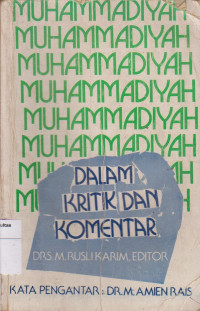 MUHAMMADIYAH
MUHAMMADIYAH
MUHAMMADIYAH
MUHAMMADIYAH
MUHAMMADIYAH
MUHAMMADIYAH
DALAM
KRITIK DAN
KOMENTAR
DRS. M. RUSLI KARIM, EDITOR
KATA PENGANTAR : DR. M. AMIEN RAIS